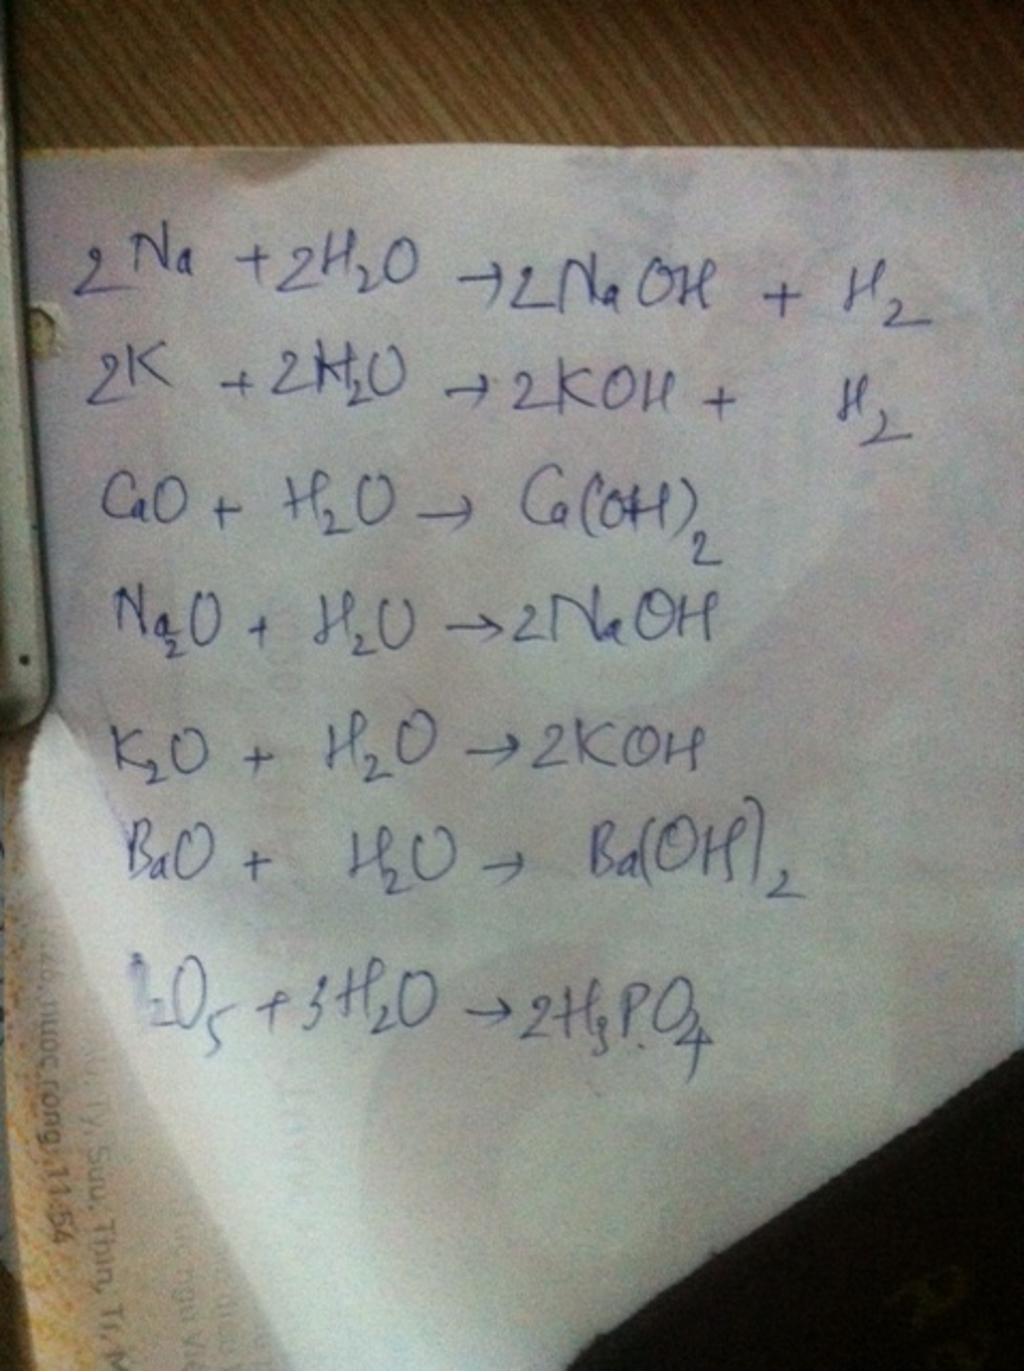 2Na + 2H₂O → 2NaOH + H₂
2K + 2H₂O → 2KOH + H₂
CaO + H₂O → Ca(OH)₂
Na₂O + H₂O → 2NaOH
K₂O + H₂O → 2KOH
BaO + H₂O → Ba(OH)₂
₂O₅ + 3H₂O → 2H₃PO₄
nước ròng, 11:54
Tý, Sửu, Thìn, Tr